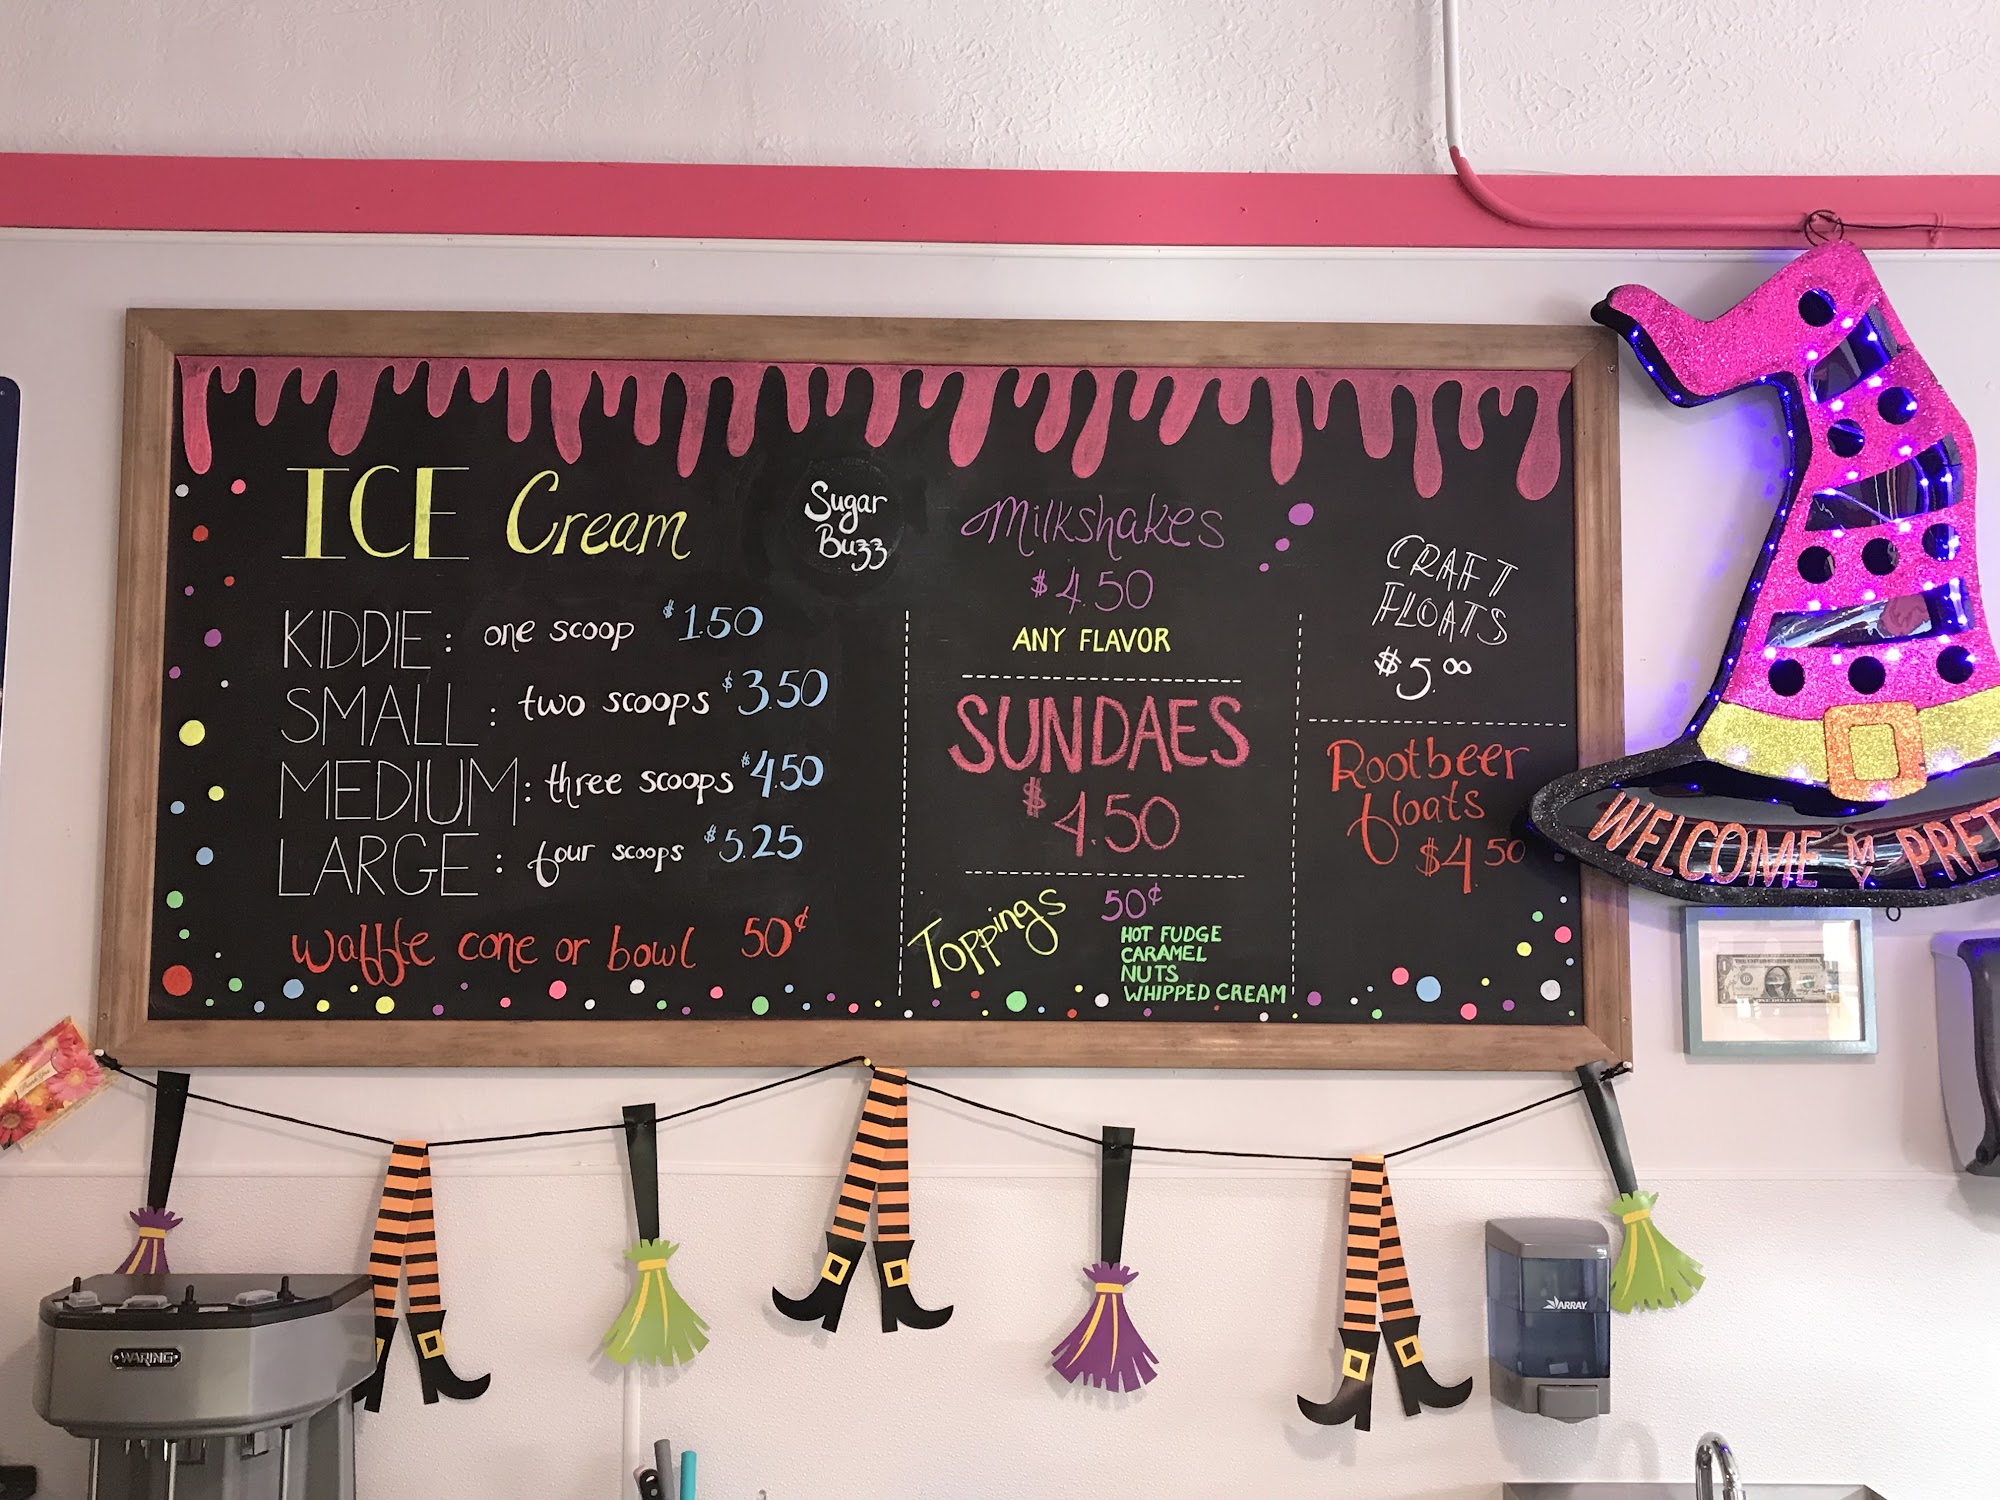 ICE Cream
Sugar
Buzz
KIDDIE: one scoop $1.50
SMALL: two scoops $3.50
MEDIUM: three scoops $4.50
LARGE: four scoops $5.25
Waffle cone or bowl 50¢
Milkshakes
$4.50
ANY FLAVOR
SUNDAES
$4.50
Toppings 50¢
HOT FUDGE
CARAMEL
NUTS
WHIPPED CREAM
CRAFT
FLOATS
$5.00
Rootbeer
floats
$4.50
WELCOME M PRET
WARING
ARRAY